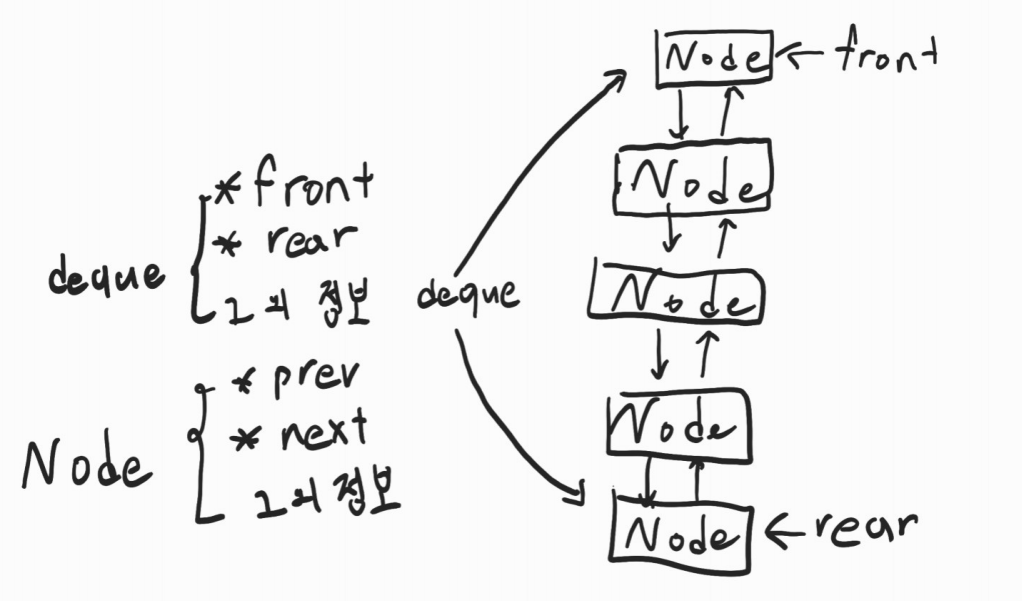 deque
*front
* rear
그 외 정보
Node
* prev
* next
그 외 정보
deque
Node
← front
Node
Node
Node
Node
← rear